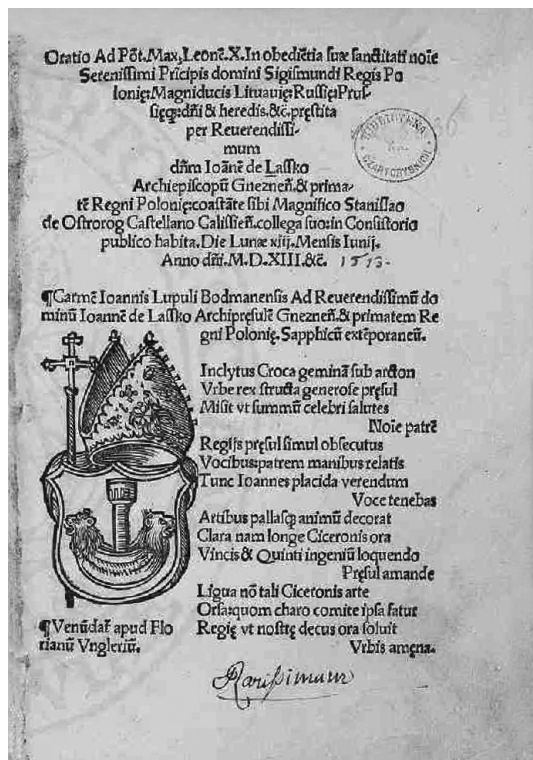 Oratio Ad Põt.Max.Leonẽ.X.In obediẽtia suæ sanctitati noĩe
Serenissimi Prĩcipis domini Sigismundi Regis Po
lonię:Magniducis Lituanię:Russię:Prus-
sięq:dñi & heredis.&c̃.pręstita
per Reuerendissi-
mum
dñm Ioãnẽ de Lassko
Archiepiscopũ Gnezneñ.& prima-
tẽ Regni Polonię:coastãte sibi Magnifico Stanislao
de Ostrorog Castellano Calissieñ.collega suo:in Consistorio
publico habita.Die Lunæ xiij.Mensis Iunij.
Anno dñi.M.D.XIII.&c̃. 1513.
BIBLIOTEKA
CZARTORYSKICH
¶Carmẽ Ioannis Lupuli Bodmanensis Ad Reuerendissimũ do
minũ Ioannẽ de Lassko Archipręsulẽ Gnezneñ.& primatem Re
gni Polonię.Sapphicũ extẽporaneũ.
Inclytus Croca geminã sub arcton
Vrbe rex structa generose pręsul
Misit vt summũ celebri salutes
Noĩe patrẽ
Regijs pręsul simul obsecutus
Vocibus:patrem manibus relatis
Tunc Ioannes placida verendum
Voce tenebas
Artibus pallasq̃ animũ decorat
Clara nam longe Ciceronis ora
Vincis & Quinti ingeniũ loquendo
Pręsul amande
Ligua nõ tali Ciceronis arte
Orsa:quom charo comite ipsa fatur
Regię vt nostrę decus ora soluit
Vrbis amęna.
¶Venũdat̃ apud Flo
rianũ Vngleriũ.
Rarissimum